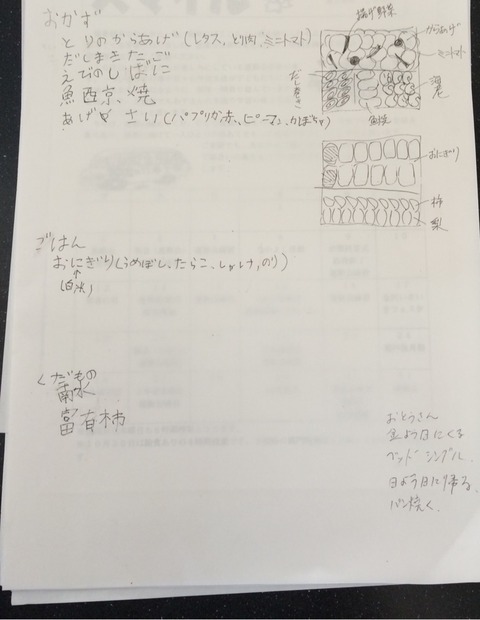 おかず
とりのからあげ(レタス、とり肉、ミニトマト)
だしまきたまご
えびのしばに
魚西京、焼
あげやさい(パプリカ赤、ピーマン、かぼちゃ)
揚げ野菜
からあげ
ミニトマト
だしまき
海老
魚焼
おにぎり
柿
梨
ごはん
おにぎり(うめぼし、たらこ、しゃけ、のり)
(白米)
くだもの
南水
富有柿
おとうさん
金よう日にくる
ベッド シングル
日よう日に帰る
パン焼く